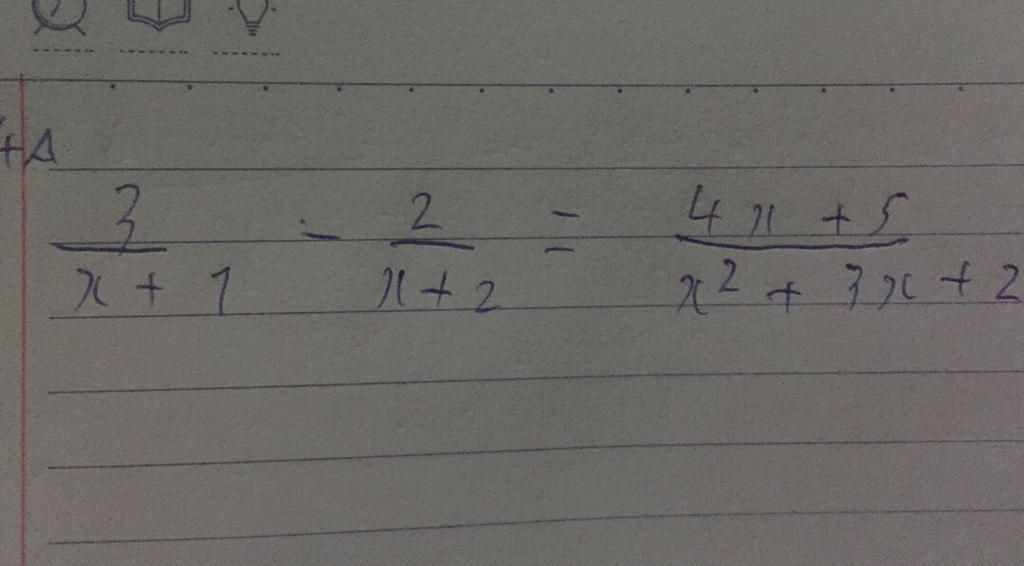 +A
3/(x + 1) - 2/(x + 2) = (4x + 5)/(x² + 3x + 2)